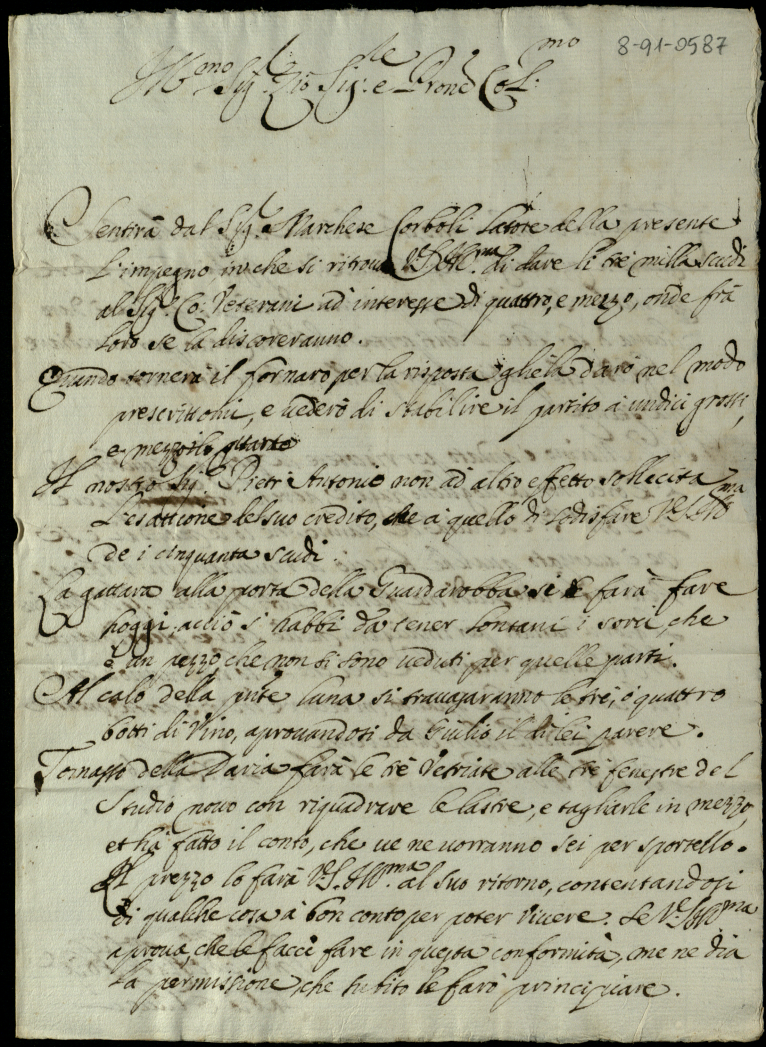 8-91-0587
Ill.mo Sig.r Zio Sig.re e Prone Col.mo
Sentirà dal Sig.r Marchese Corboli latore della presente
l'impegno in che si ritrova V.S. Ill.ma di dare li trè milla scudi
al Sig.r Co: Veterani ad interesse di quattro, e mezzo, onde frà
loro se la discoreranno.
Quando tornerà il fornaro per la risposta ghiela darò nel modo
prescrittomi, e vederò di stabilire il partito a undici grossi,
e mezzo lo quarto
Il nostro Sig.r Pietr'Antonio non ad altro effetto sollecita
l'esattione del suo credito, che a quello di sodisfare V.S. Ill.ma
de i cinquanta scudi.
La gattara alla porta della Guardarobba si le farà fare
hoggi, acciò si habbi da tener lontani i sorci, che
è un pezzo che non si sono veduti per quelle parti.
Al calo della pnte luna si travasaranno le tre, ò quattro
botti di Vino, aprovandosi da Giulio il di lei parere.
Tomasso della Daria farà le trè Vetriate alle trè fenestre del
Studio novo con riquadrare le lastre, e tagliarle in mezzo,
et hà fatto il conto, che ve ne vorranno sei per sportello.
Il prezzo lo farà V.S. Ill.ma al suo ritorno, contentandosi
di qualche cosa à bon conto per poter vivere. Se V.S. Ill.ma
aprova, che le facci fare in questa conformità, me ne dia
la permissione, che subito le farò principiare.